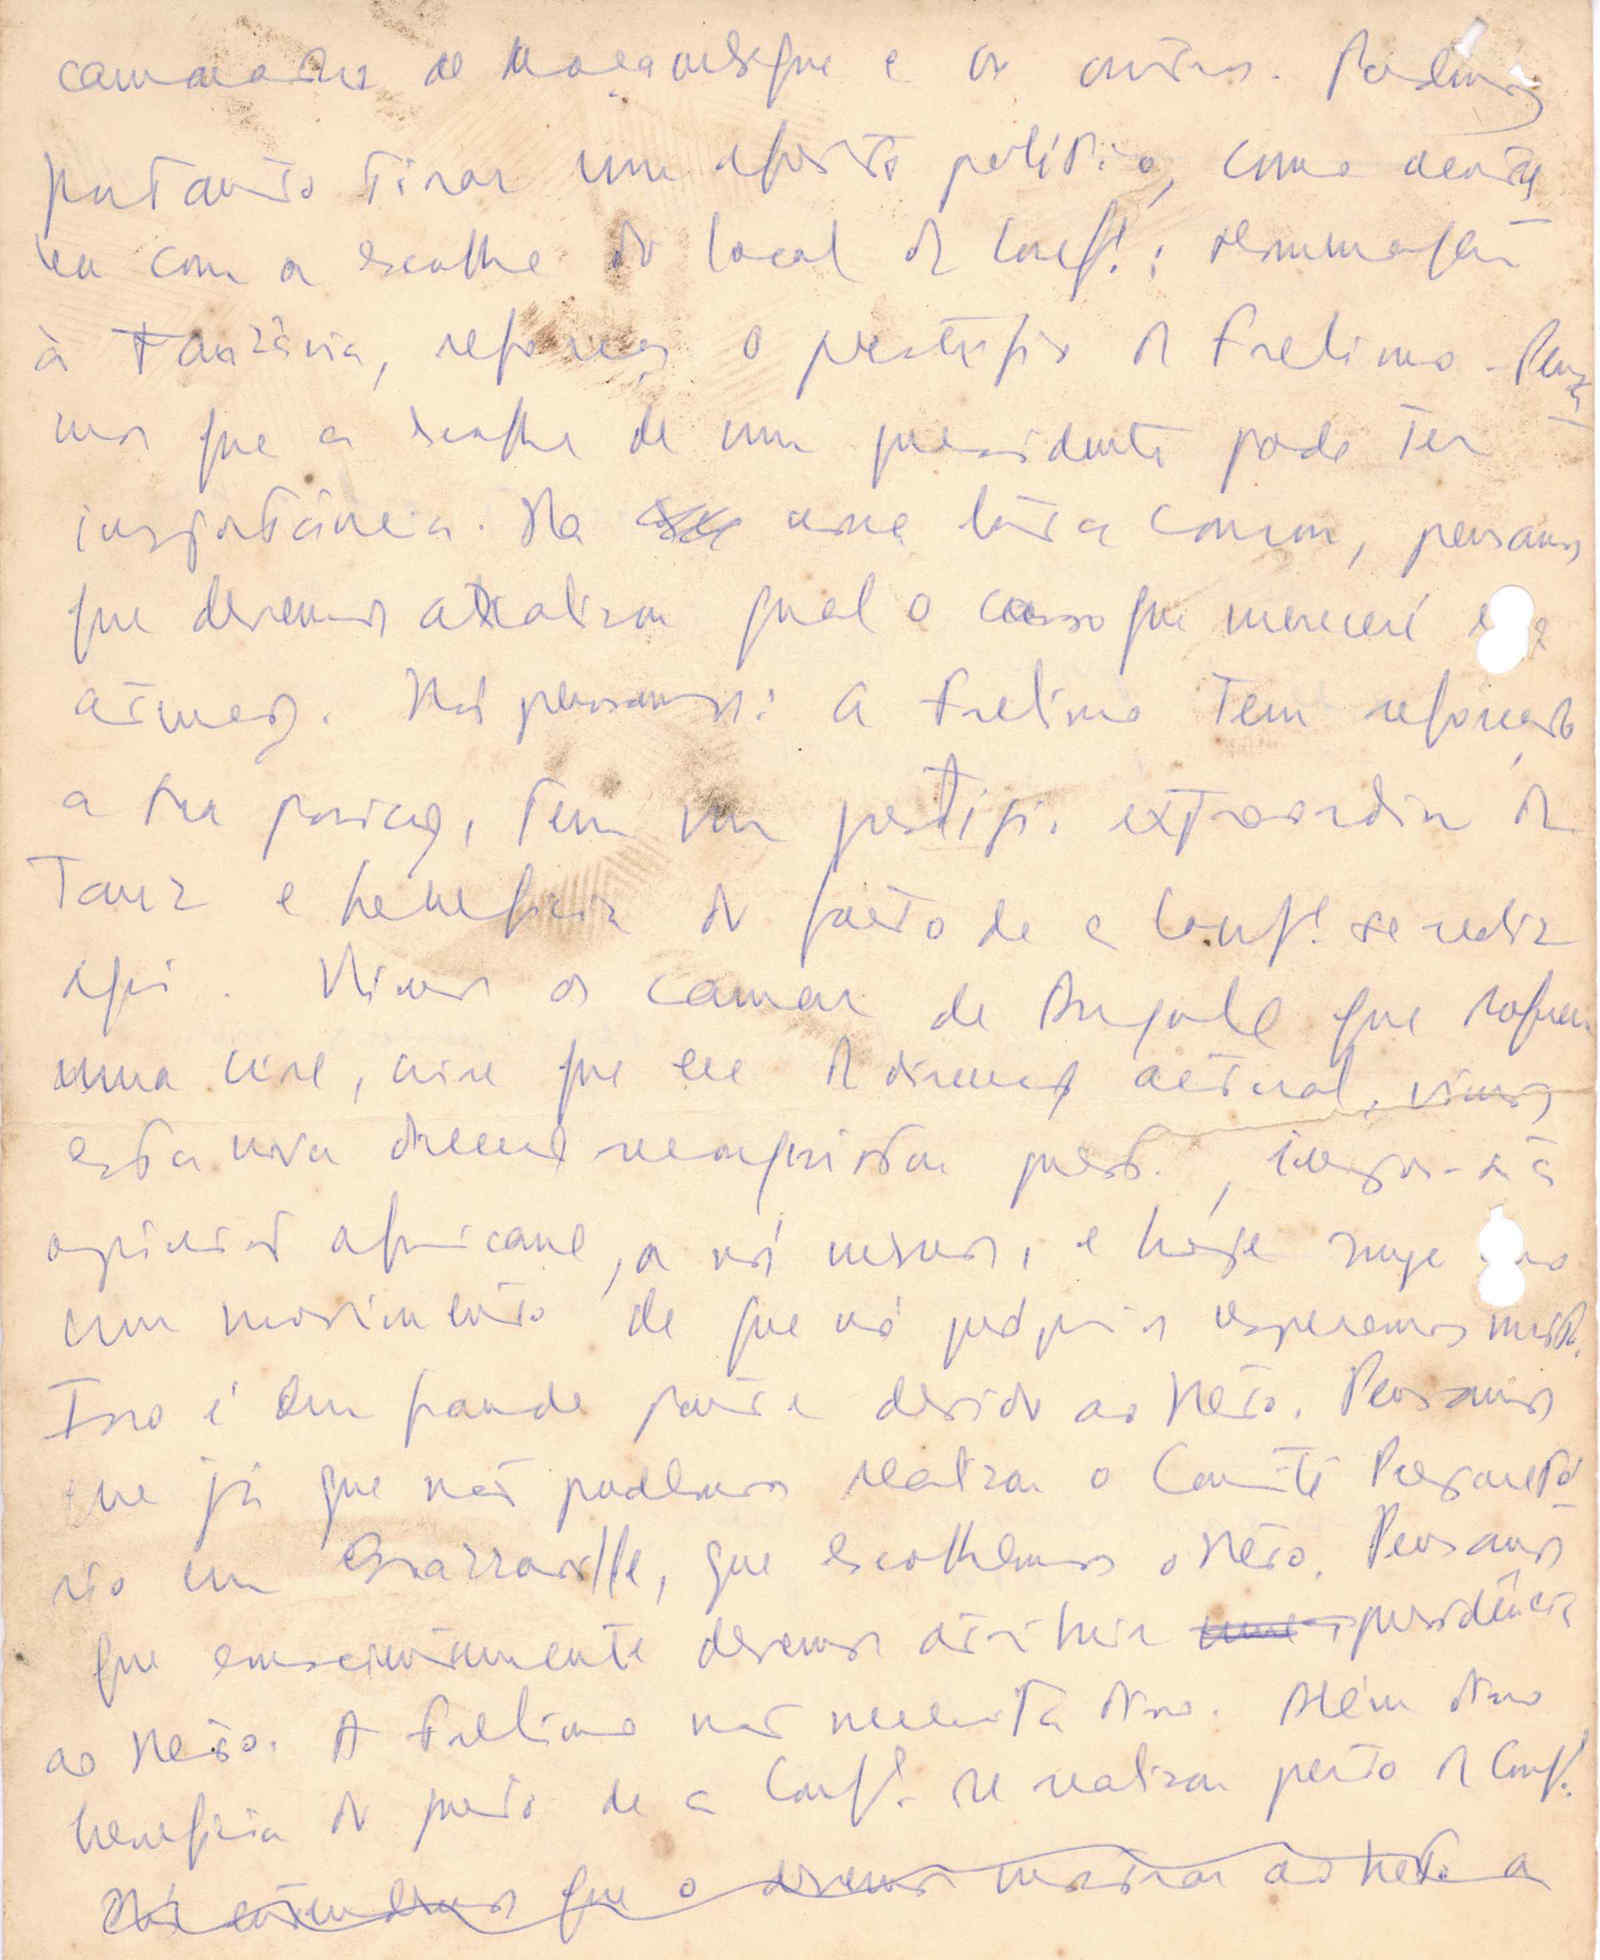 camaradas de Moçambique e os outros. Podemos
portanto tirar um aspecto político, como aconte
ceu com a escolha do local da Conf!:
à Tanzânia, reforçar o prestígio da Frelimo - Pensa
mos que a escolha de um presidente pode ter
importância. Na uma luta comum, pensamos
que devemos analisar qual o caso que merecerá
atenção. Nós pensamos: a Frelimo tem reforçado
a sua posição, tem um prestígi. extraordin da
Tanz e beneficia do facto de a Conf! se realiz
aqui. Vimos os camar de Angola que sofrem
uma crise, crise que da direcção actual, vimos
esta nova direcção reconquistar prest.,
opinião africana, a nós mesmos, e hoje surge
um movimento de que nós próprios esperamos muito.
Isso é em grande parte devido ao Neto. Pensamos
que já que não podemos realizar o Comité Preparató
rio em Brazzaville, que escolhemos o Neto. Pensamos
que conscientemente devemos atribuir presidência
ao Neto. A Frelimo não necessita disso. Além disso
beneficia do facto de a Conf! se realizar perto da Conf!
Nós entendemos que o devemos mostrar ao Neto a